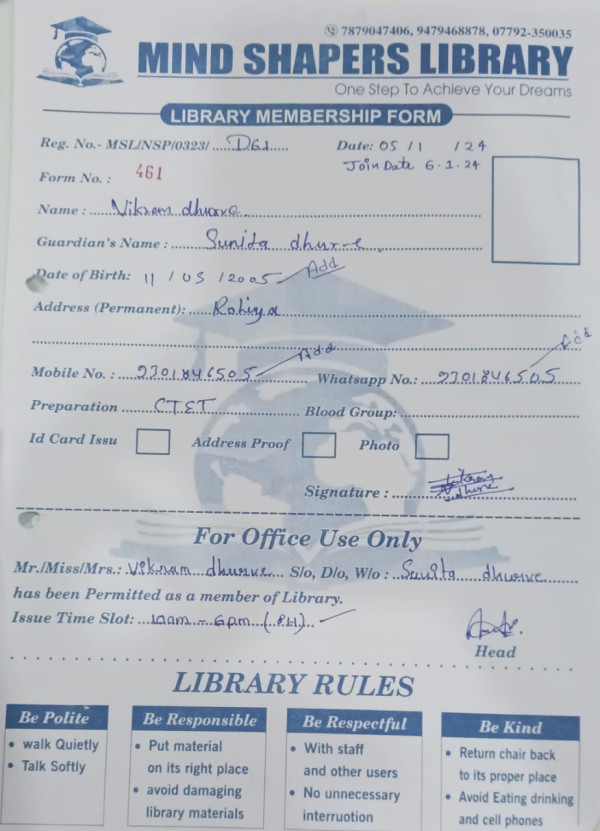 7879047406, 9479468878, 07792-350035
MIND SHAPERS LIBRARY
One Step To Achieve Your Dreams
LIBRARY MEMBERSHIP FORM
Reg. No.- MSL/NSP/0323/.....D61..... Date: 05 / 1 / 24
Join Date 6.1.24
Form No. : 461
Name : Vikram dhurve
Guardian's Name : Sunita dhurve
Date of Birth: 11 / 05 / 2005 Add
Address (Permanent): Rohiya
Mobile No. : 9301846505 Add Whatsapp No.: 9301846505 Add
Preparation CTET Blood Group:
Id Card Issu Address Proof Photo
Signature :
For Office Use Only
Mr./Miss/Mrs.: Vikram dhurve S/o, D/o, W/o : Sunita dhurve
has been Permitted as a member of Library.
Issue Time Slot: 10am - 6pm (P.H)
Head
LIBRARY RULES
Be Polite
• walk Quietly
• Talk Softly
Be Responsible
• Put material
on its right place
• avoid damaging
library materials
Be Respectful
• With staff
and other users
• No unnecessary
interruotion
Be Kind
• Return chair back
to its proper place
• Avoid Eating drinking
and cell phones